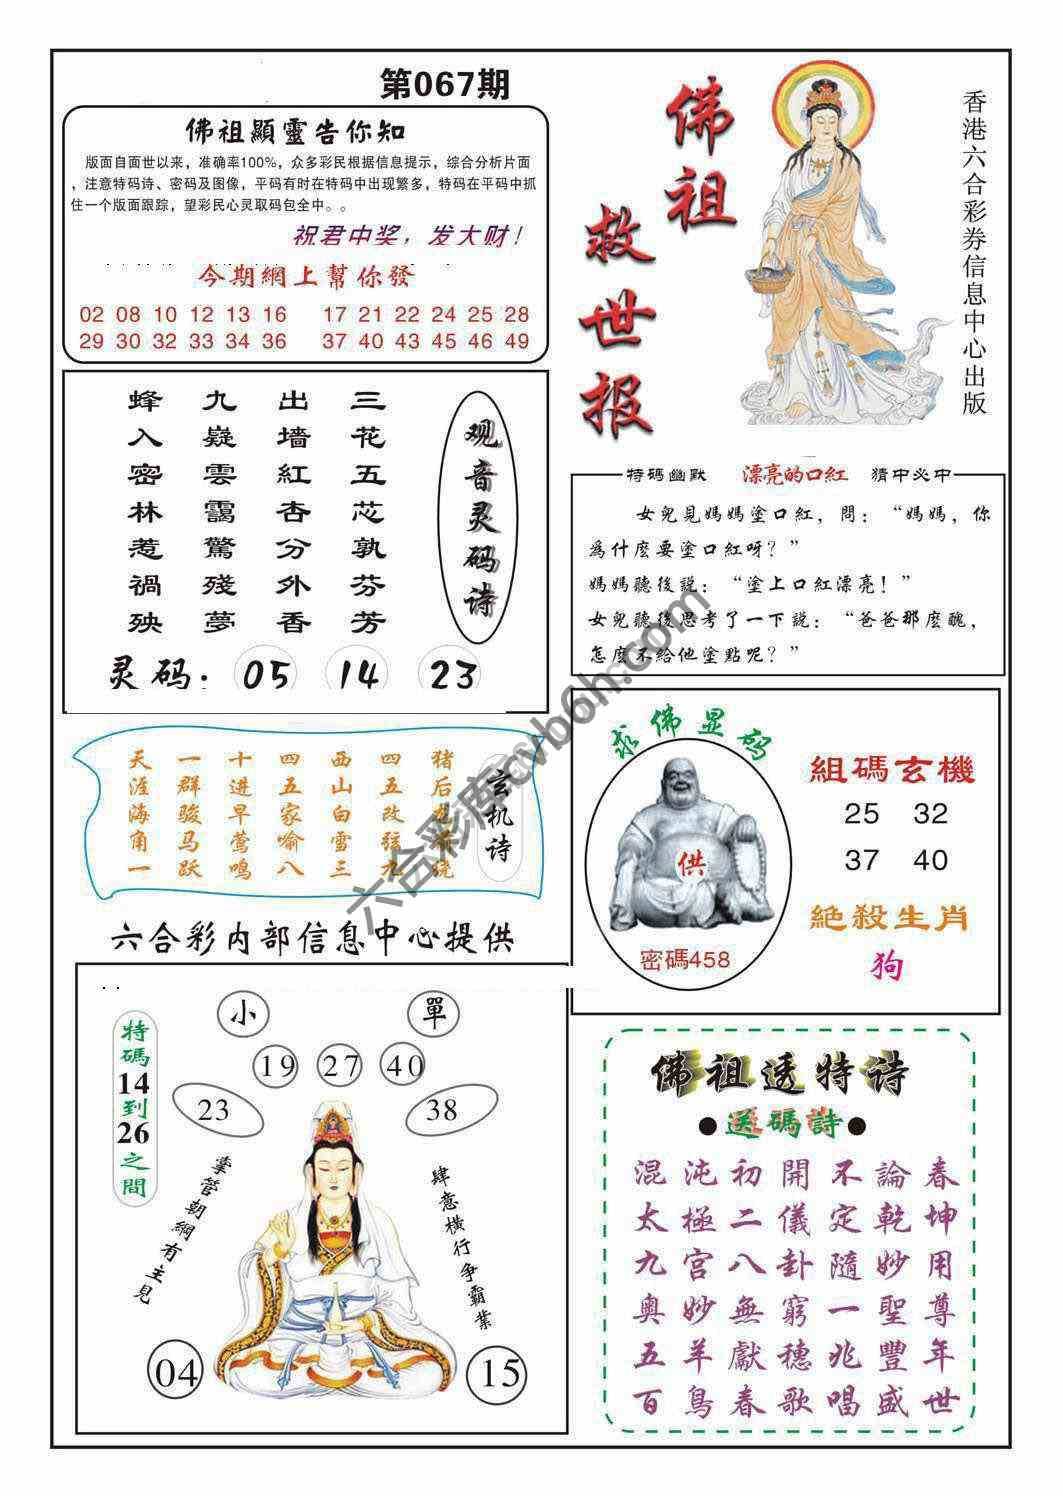 第067期
佛祖顯靈告你知
版面自面世以来，准确率100%，众多彩民根据信息提示，综合分析片面
，注意特码诗、密码及图像，平码有时在特码中出现繁多，特码在平码中抓
住一个版面跟踪，望彩民心灵取码包全中。。
祝君中奖，发大财！
今期網上幫你發
02 08 10 12 13 16 17 21 22 24 25 28
29 30 32 33 34 36 37 40 43 45 46 49
佛祖
救世报
香港六合彩券信息中心出版
观音灵码诗
三花五芯孰芬芳
出墙紅杏分外香
九嶷雲靄驚殘夢
蜂入密林惹禍殃
灵码：05 14 23
特碼幽默 漂亮的口紅 猜中必中
女兒見媽媽塗口紅，問：“媽媽，你
為什麼要塗口紅呀？”
媽媽聽後說：“塗上口紅漂亮！”
女兒聽後思考了一下說：“爸爸那麼醜，
怎麼不給他塗點呢？”
玄机诗
猪后
四五改弦九
西山白雪三
四五家喻八
十进早莺鸣
一群骏马跃
天涯海角一
求佛显码
供
密碼458
組碼玄機
25 32
37 40
絕殺生肖
狗
六合彩内部信息中心提供
特碼14到26之間
小 單
19 27 40
23 38
掌管朝綱有主見
肆意橫行争霸業
04 15
佛祖透特诗
●送碼詩●
混沌初開不論春
太極二儀定乾坤
九宮八卦隨妙用
奥妙無窮一聖尊
五羊獻穗兆豐年
百鳥春歌唱盛世
六合彩库cvb6h.com